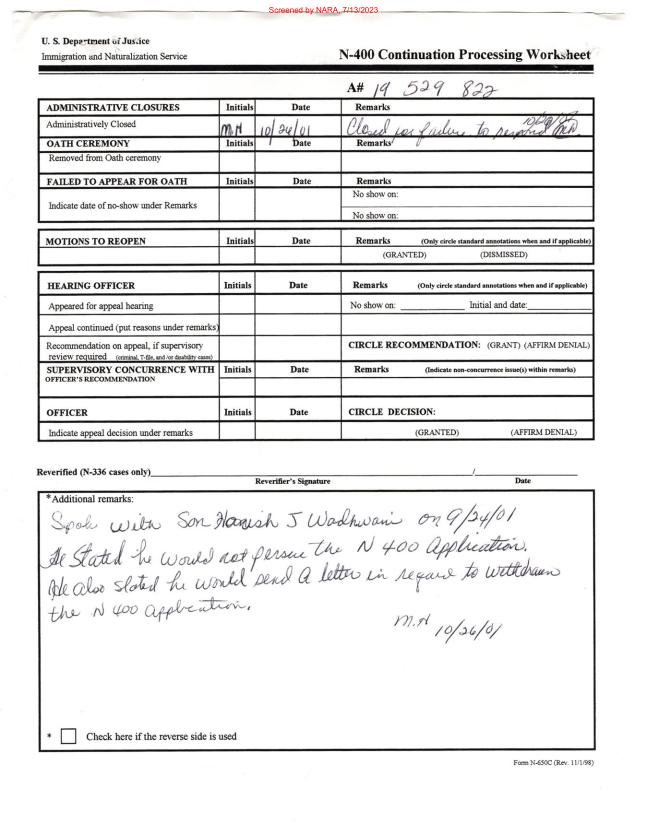 Screened by NARA, 7/13/2023
U. S. Department of Justice
Immigration and Naturalization Service
N-400 Continuation Processing Worksheet
A# 19 529 822
ADMINISTRATIVE CLOSURES Initials Date Remarks
Administratively Closed M.N 10/24/01 Closed for failure to respond
OATH CEREMONY Initials Date Remarks
Removed from Oath ceremony
FAILED TO APPEAR FOR OATH Initials Date Remarks
No show on:
Indicate date of no-show under Remarks
No show on:
MOTIONS TO REOPEN Initials Date Remarks (Only circle standard annotations when and if applicable)
(GRANTED) (DISMISSED)
HEARING OFFICER Initials Date Remarks (Only circle standard annotations when and if applicable)
Appeared for appeal hearing No show on: Initial and date:
Appeal continued (put reasons under remarks)
Recommendation on appeal, if supervisory CIRCLE RECOMMENDATION: (GRANT) (AFFIRM DENIAL)
review required (criminal, T-file, and /or disability cases)
SUPERVISORY CONCURRENCE WITH Initials Date Remarks (Indicate non-concurrence issue(s) within remarks)
OFFICER'S RECOMMENDATION
OFFICER Initials Date CIRCLE DECISION:
Indicate appeal decision under remarks (GRANTED) (AFFIRM DENIAL)
Reverified (N-336 cases only) /
Reverifier's Signature Date
*Additional remarks:
Spok with Son Harish J Wadhwani on 9/24/01
He Stated he would not persue the N 400 Application.
He also stated he would send A letter in regard to withdrawn
the N 400 application.
M.N 10/26/01
* Check here if the reverse side is used
Form N-650C (Rev. 11/1/98)